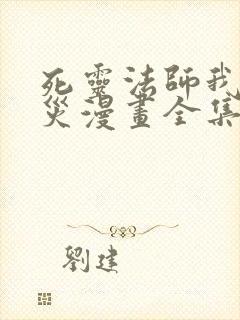 死靈法師我
災漫畫全集
劉建